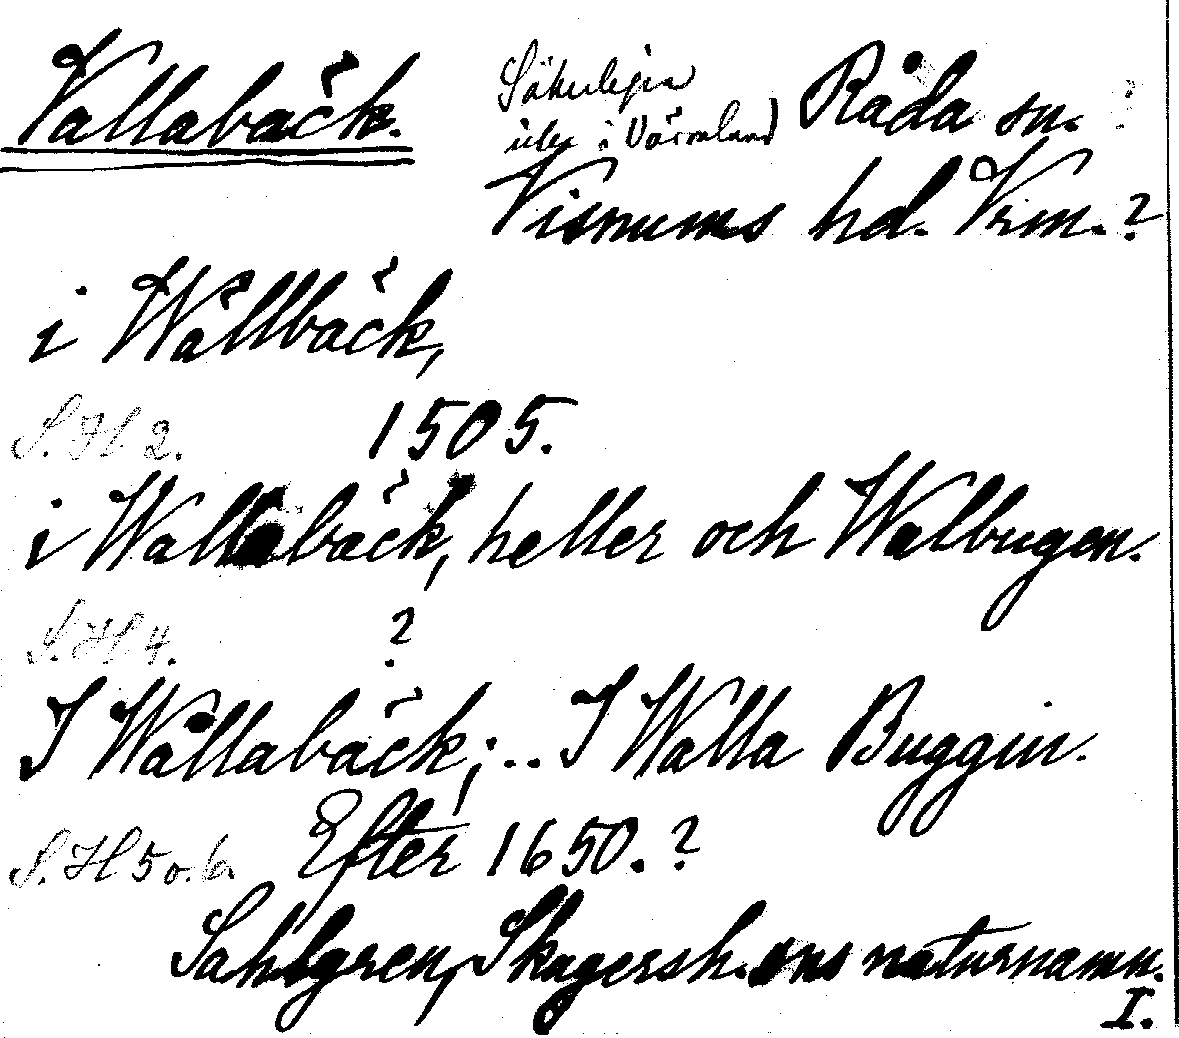 Vallabäck.
Säkerligen Råda sn. ?
icke i Värmland)
Visnums hd. Vrm. ?
i Wållbäck,
S. H 2. 1505.
i Wallabäck, heller och Walbugen.
S. H 4. ?
I Wållabäck; .. I Walla Buggin.
S. H 5 o. 6. Efter 1650. ?
Sahlgren, Skagersh.ons naturnamn.
I.